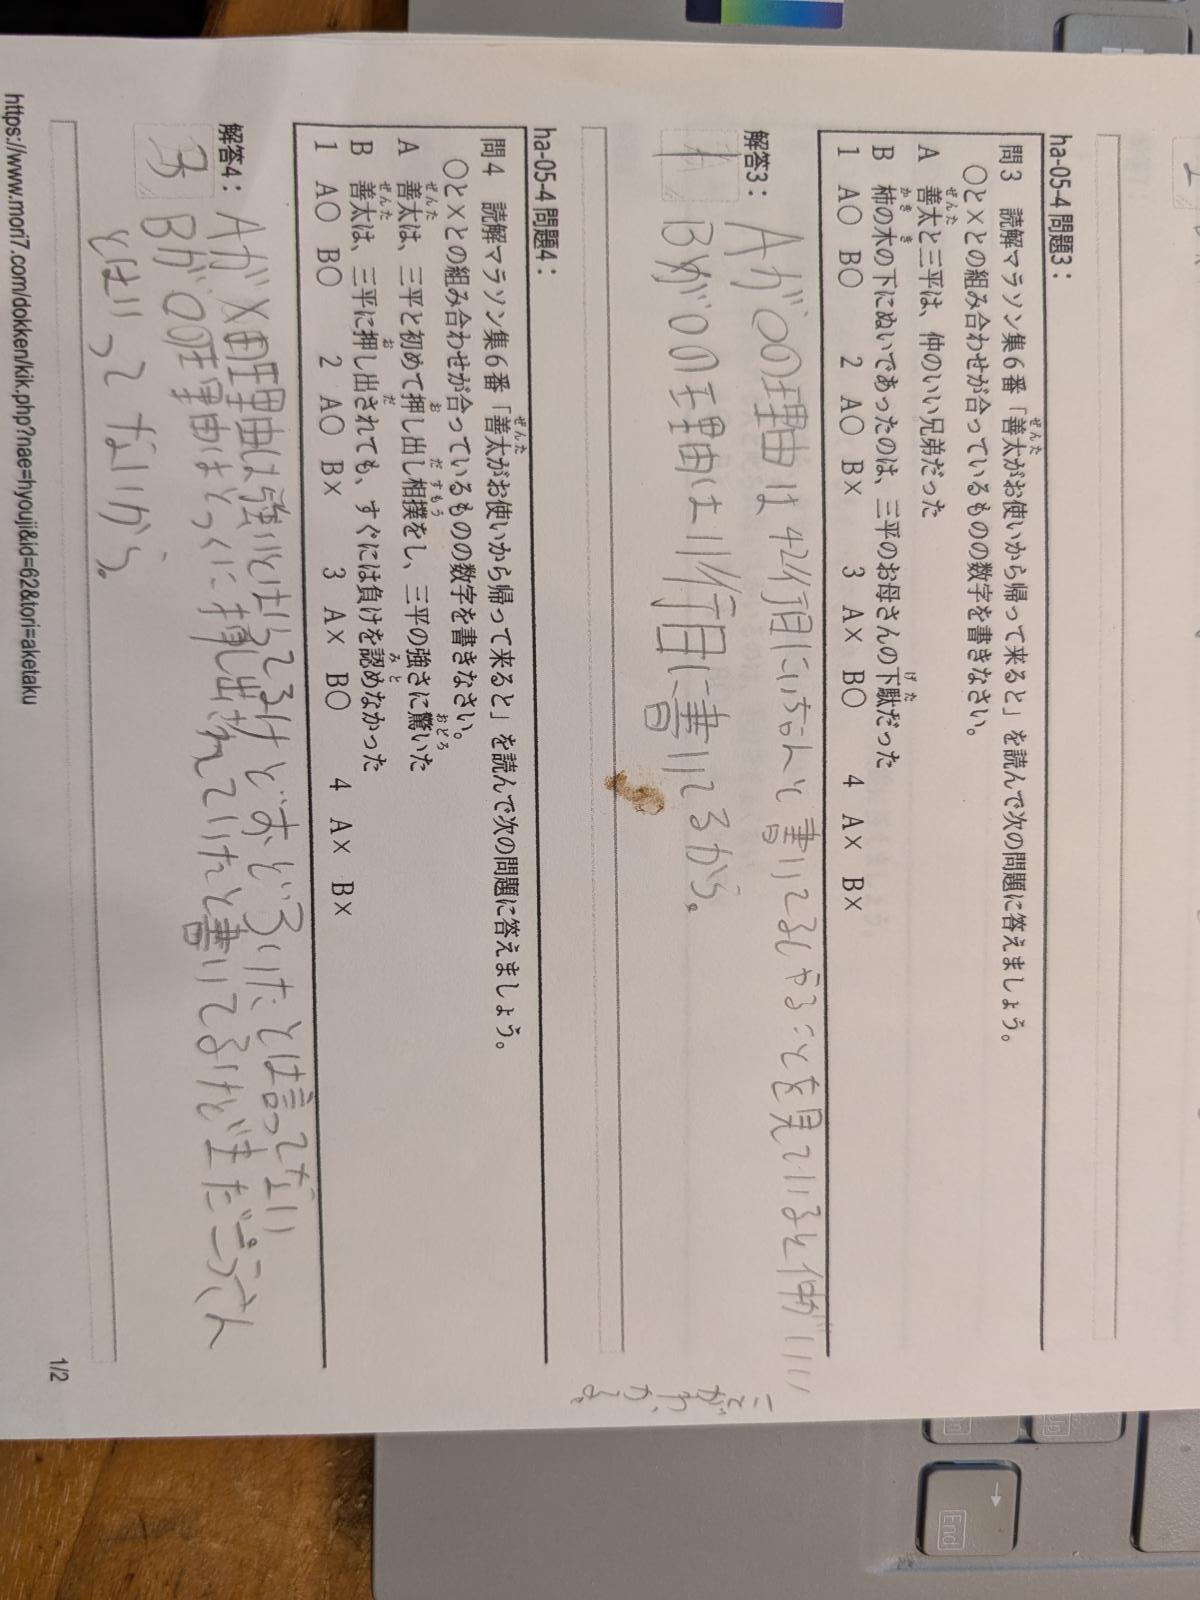 ha-05-4 問題3：
問3　読解マラソン集6番「善太がお使いから帰って来ると」を読んで次の問題に答えましょう。
○と×との組み合わせが合っているものの数字を書きなさい。
A　善太と三平は、仲のいい兄弟だった
B　柿の木の下にぬいであったのは、三平のお母さんの下駄だった
1　A○　B○　　2　A○　B×　　3　A×　B○　　4　A×　B×
解答3：
Aが○の理由は42行目にいちんと書いてるしやることを見ていると仲がいい
ことがわかる。
Bが○の理由は11行目に書いてるから。
ha-05-4 問題4：
問4　読解マラソン集6番「善太がお使いから帰って来ると」を読んで次の問題に答えましょう。
○と×との組み合わせが合っているものの数字を書きなさい。
A　善太は、三平と初めて押し出し相撲をし、三平の強さに驚いた
B　善太は、三平に押し出されても、すぐには負けを認めなかった
1　A○　B○　　2　A○　B×　　3　A×　B○　　4　A×　B×
解答4：
3
Aが×理由は強いとは言ってるけどおどろいたとは言ってない
Bが○の理由はとっくに押し出されていたと書いてるけどまだこうさん
とはいってないから。
https://www.mori7.com/dokken/kik.php?nae=hyouji&id=62&tori=aketaku
1/2
End